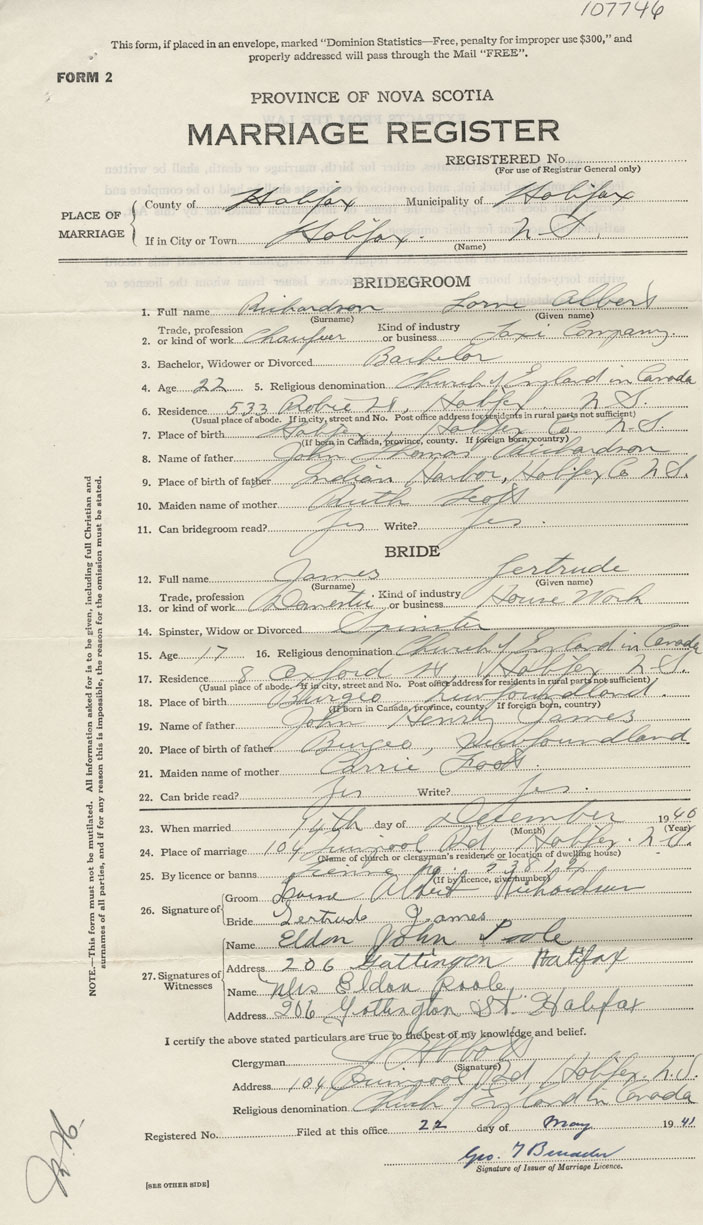 107746
This form, if placed in an envelope, marked "Dominion Statistics—Free, penalty for improper use $300," and
properly addressed will pass through the Mail "FREE".
FORM 2
PROVINCE OF NOVA SCOTIA
MARRIAGE REGISTER
REGISTERED No.
(For use of Registrar General only)
PLACE OF MARRIAGE
County of Halifax Municipality of Halifax
If in City or Town Halifax. N. S.
(Name)
BRIDEGROOM
1. Full name Richardson Lorne Albert
(Surname) (Given name)
2. Trade, profession or kind of work Chaufeur Kind of industry or business Taxi Company.
3. Bachelor, Widower or Divorced Bachelor
4. Age 22 5. Religious denomination Church of England in Canada
6. Residence 533 Robie St, Halifax N. S.
(Usual place of abode. If in city, street and No. Post office address for residents in rural parts not sufficient)
7. Place of birth Halifax, Halifax Co N. S.
(If born in Canada, province, county. If foreign born, country)
8. Name of father John Thomas Richardson
9. Place of birth of father Indian Harbor, Halifax Co N. S.
10. Maiden name of mother
11. Can bridegroom read? Yes Write? Yes.
BRIDE
12. Full name James Gertrude
(Surname) (Given name)
13. Trade, profession or kind of work Domestic Kind of industry or business House Work
14. Spinster, Widow or Divorced Spinster
15. Age 17 16. Religious denomination Church of England in Canada
17. Residence 8 Oxford St, Halifax N. S.
(Usual place of abode. If in city, street and No. Post office address for residents in rural parts not sufficient)
18. Place of birth Burgeo, Newfoundland.
(If born in Canada, province, county. If foreign born, country)
19. Name of father John Henry James
20. Place of birth of father Burgeo, Newfoundland
21. Maiden name of mother Carrie
22. Can bride read? Yes Write? Yes.
23. When married 14th day of December 1940
(Month) (Year)
24. Place of marriage 104 Quinpool Rd, Halifax. N. S.
(Name of church or clergyman's residence or location of dwelling house)
25. By licence or banns License No.
(If by licence, give number)
26. Signature of
Groom Lorne Albert Richardson
Bride Gertrude James
27. Signatures of Witnesses
Name Eldon John Poole
Address 206 Gattingen Halifax
Name Mrs Eldon Poole
Address 206 Gottington St. Halifax
I certify the above stated particulars are true to the best of my knowledge and belief.
Clergyman
(Signature)
Address 104 Quinpool Rd Halifax. N. S.
Religious denomination Church of England in Canada
Registered No. Filed at this office 22 day of May 1941
Geo.
Signature of Issuer of Marriage Licence.
[SEE OTHER SIDE]
NOTE.—This form must not be mutilated. All information asked for is to be given, including full Christian and
surnames of all parties, and if for any reason this is impossible, the reason for the omission must be stated.